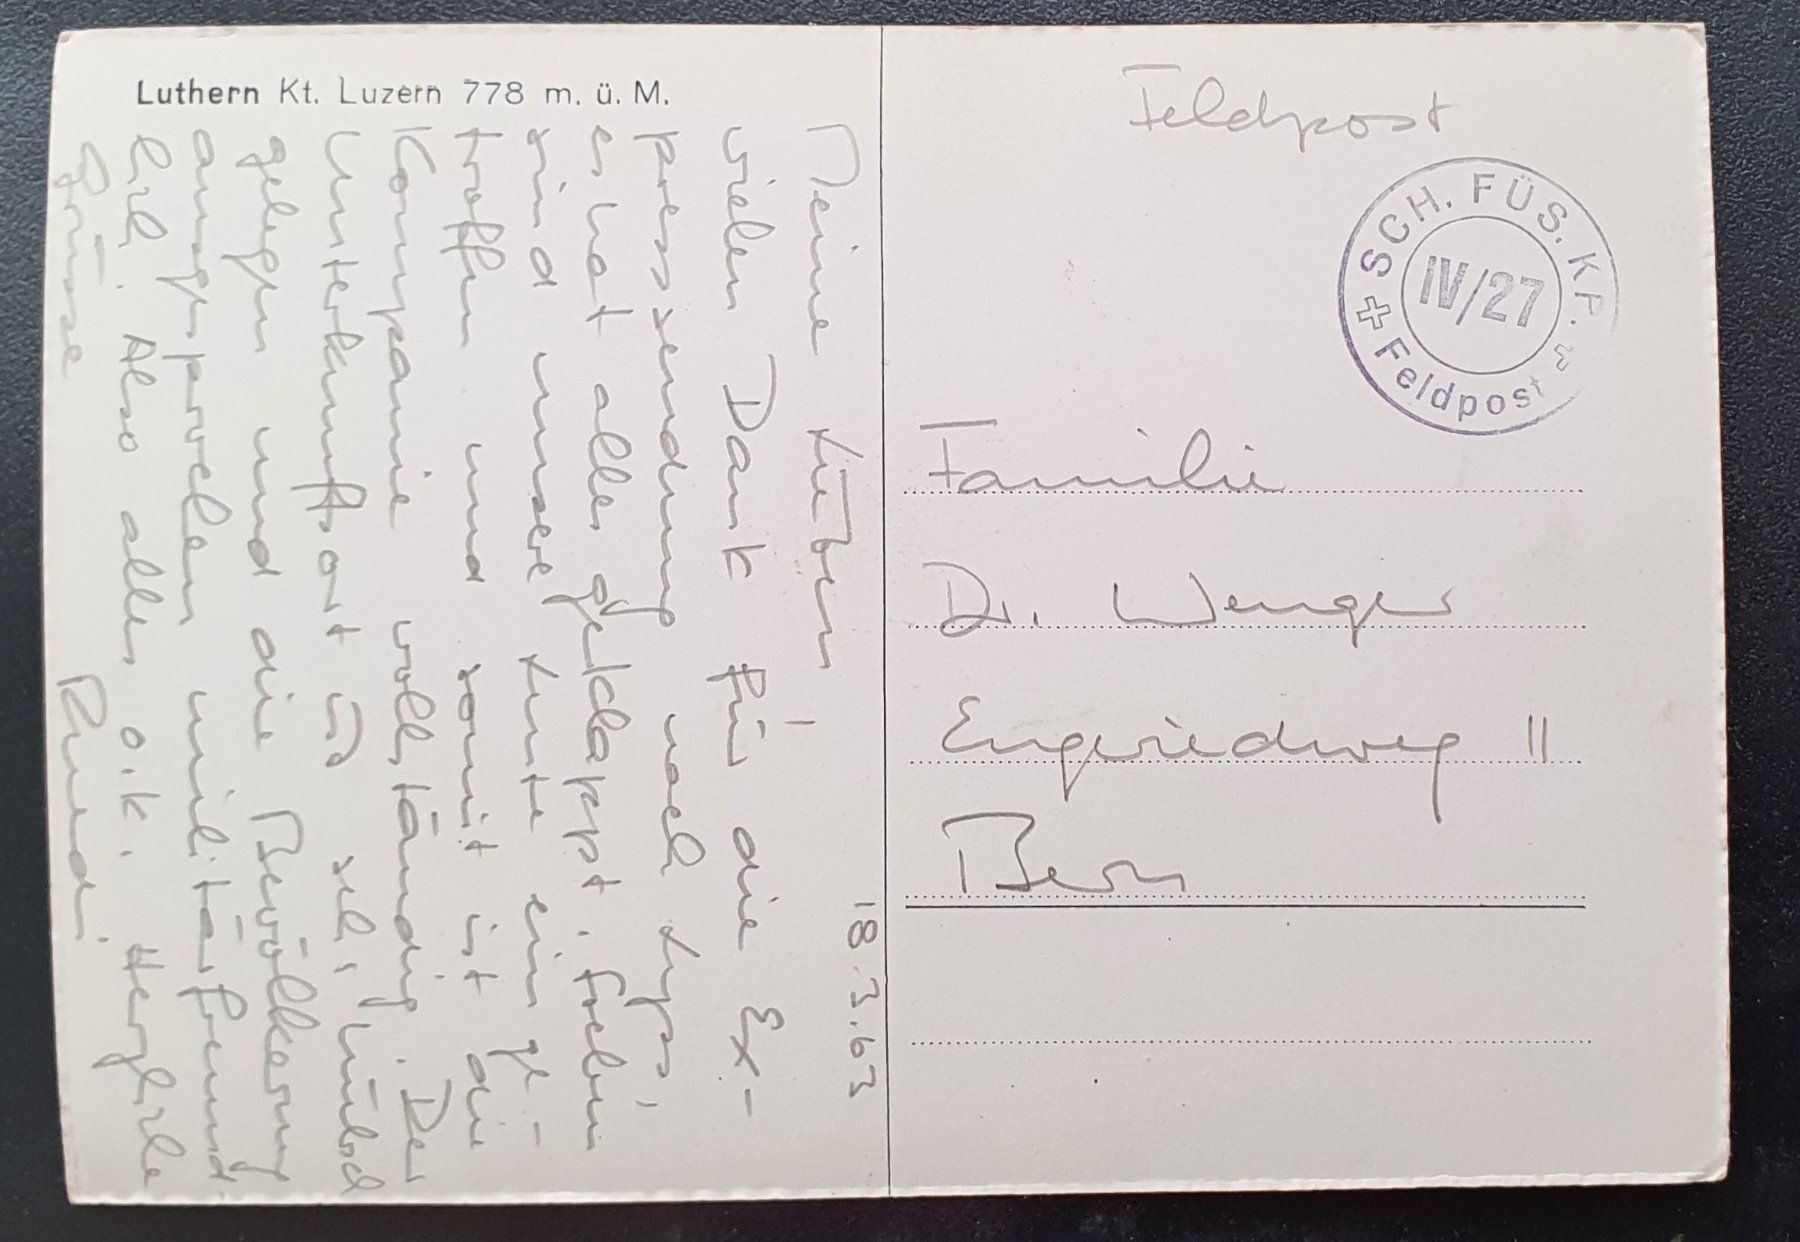 Luthern Kt. Luzern 778 m. ü. M.
18.3.63
Meine Lieben!
vielen Dank für die Ex-
pressendung nach Lyss,
es hat alles geklappt. Soeben
sind unsere Leute einge-
troffen und somit ist die
Kompanie vollständig. Der
Unterkunftsort ist sehr hübsch
gelegen und die Bevölkerung
ausgesprochen militärfreund-
lich. Also alles o.k. Herzliche
Grüsse Ruedi
Feldpost
SCH. FÜS. KP.
IV/27
Feldpost
Familie
Dr. Wenger
Engeriedweg 11
Bern